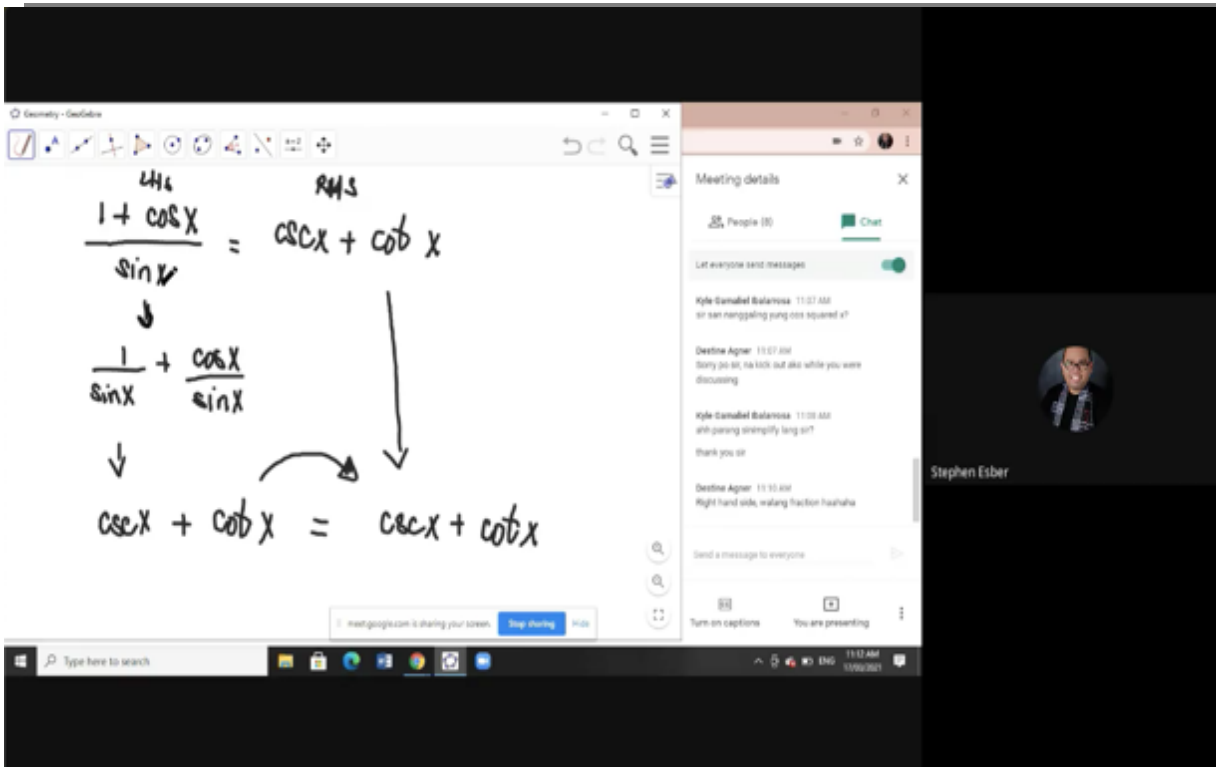 Geometry - GeoGebra
LHS RHS
1 + cos x
= csc x + cot x
sin x
1 + cos x
sin x sin x
csc x + cot x = csc x + cot x
meet.google.com is sharing your screen. Stop sharing Hide
Meeting details
People (8) Chat
Let everyone send messages
11:07 AM
sir san nanggaling yung cos squared x?
Destine Agner 11:07 AM
Sorry po sir, na kick out ako while you were
discussing
11:08 AM
ahh parang sinimplify lang sir?
thank you sir
Destine Agner 11:10 AM
Right hand side, walang fraction haahaha
Send a message to everyone
Turn on captions You are presenting
Stephen Esber
Type here to search
ENG 11:12 AM